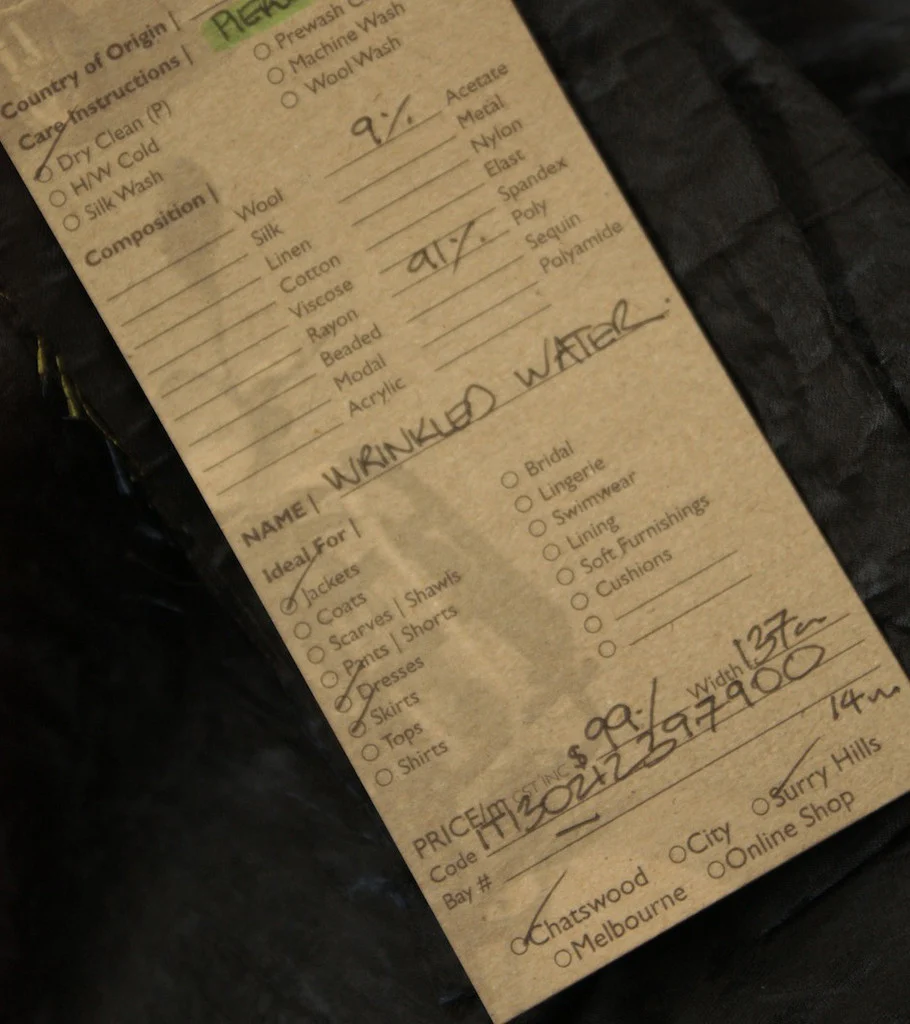 Country of Origin |
Care Instructions |
Dry Clean (P)
H/W Cold
Silk Wash
Prewash
Machine Wash
Wool Wash
Composition |
Wool
Silk
Linen
Cotton
Viscose
Rayon
Beaded
Modal
Acrylic
9% Acetate
Metal
Nylon
Elast
Spandex
91% Poly
Sequin
Polyamide
NAME | WRINKLED WATER.
Ideal For |
Jackets
Coats
Scarves | Shawls
Pants | Shorts
Dresses
Skirts
Tops
Shirts
Bridal
Lingerie
Swimwear
Lining
Soft Furnishings
Cushions
PRICE/m GST INC $99./ Width 137cm
Code
Bay # — 14m
Chatswood City Surry Hills
Melbourne Online Shop